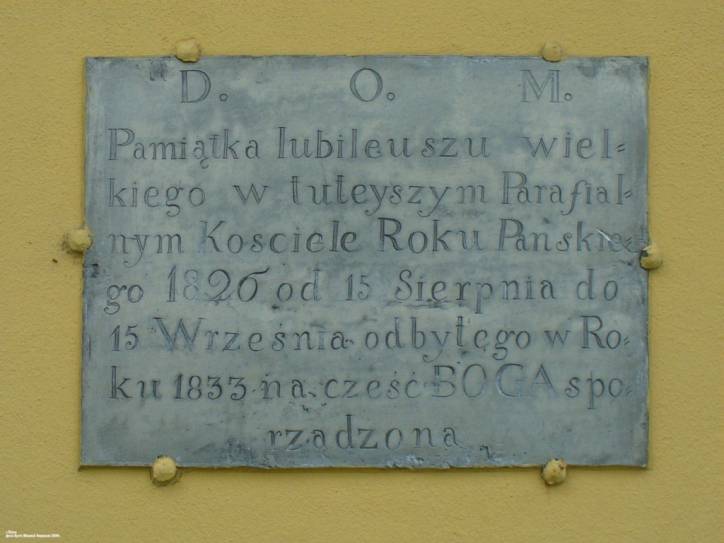 D. O. M.
Pamiątka Iubileuszu wiel=
kiego w tuteyszym Parafial=
nym Kosciele Roku Pańskie=
go 1826 od 15 Sierpnia do
15 Września odbytego w Ro=
ku 1833 na cześć BOGA spo=
rządzona